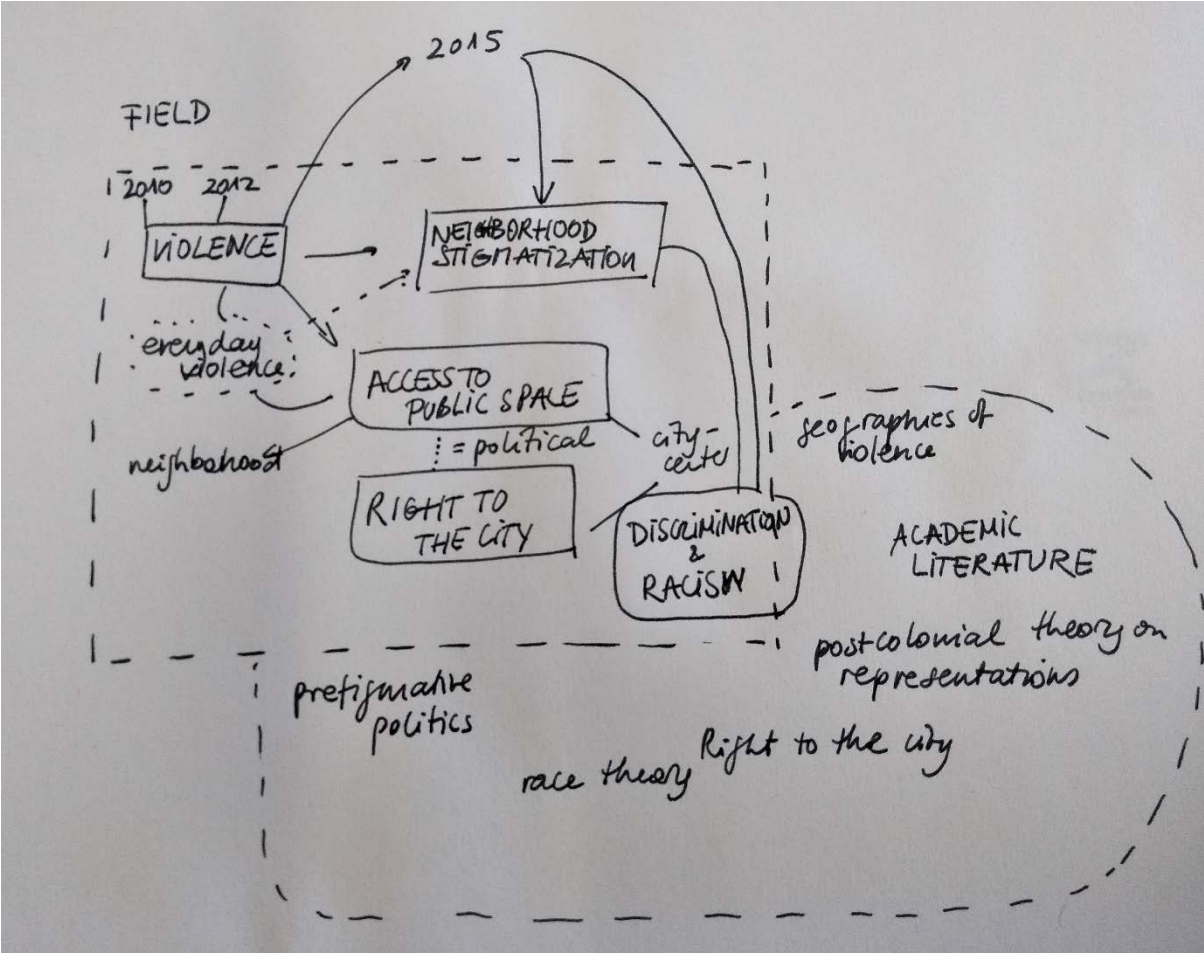 2015
FIELD
2010
2012
VIOLENCE
NEIGHBORHOOD
STIGMATIZATION
everyday
violence
ACCESS TO
PUBLIC SPACE
= political
neighborhood
city-
center
RIGHT TO
THE CITY
DISCRIMINATION
&
RACISM
geographies of
violence
ACADEMIC
LITERATURE
postcolonial theory on
representations
prefigurative
politics
Right to the city
race theory